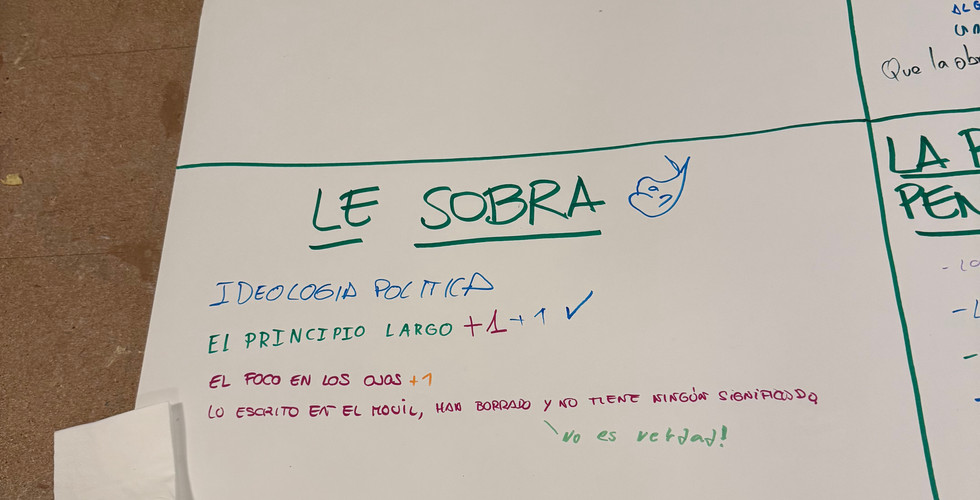 Que la ob
LE SOBRA
LA
PEN
IDEOLOGIA POLITICA
EL PRINCIPIO LARGO +1 +1 ✓
EL FOCO EN LOS OJOS +1
LO ESCRITO EN EL MOVIL, HAN BORRADO Y NO TIENE NINGÚN SIGNIFICADO
No es verdad!